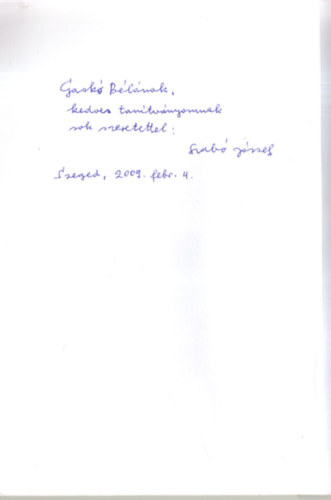 Gaskó Bélának,
kedves tanítványomnak
sok szeretettel:
Szabó József
Szeged, 2009. febr. 4.